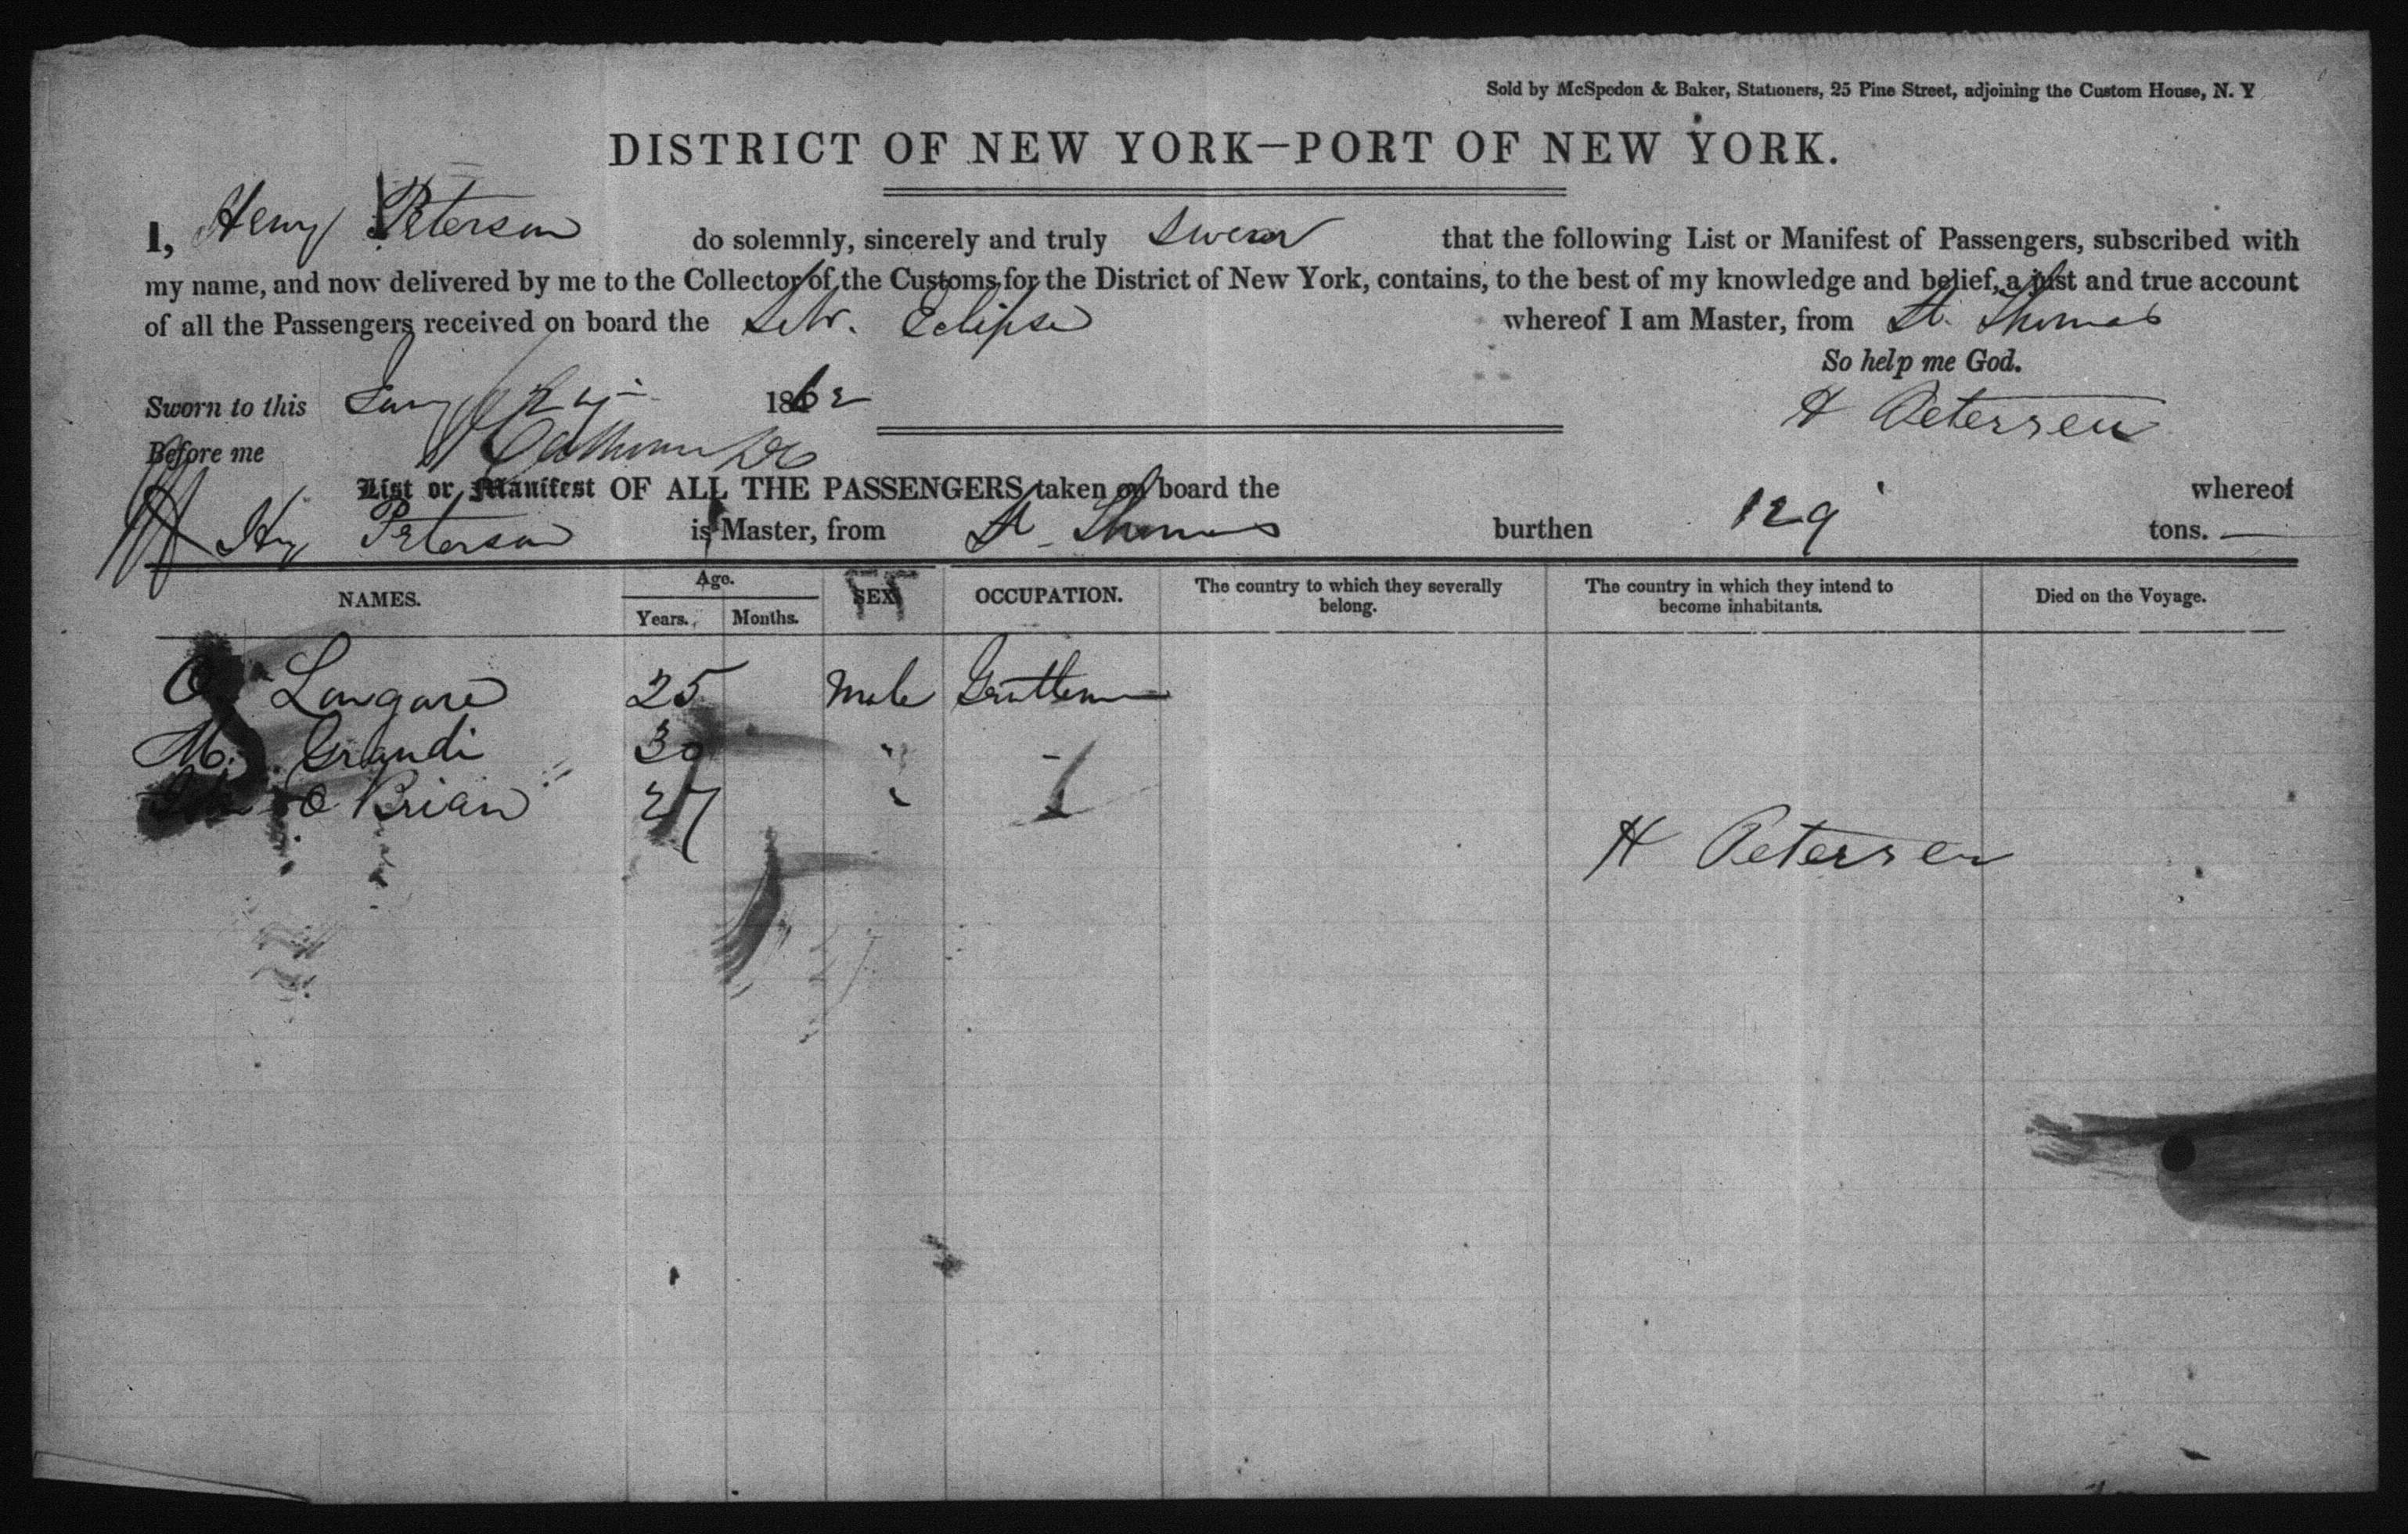 Sold by McSpedon & Baker, Stationers, 25 Pine Street, adjoining the Custom House, N. Y
DISTRICT OF NEW YORK—PORT OF NEW YORK.
I, Henry Peterson do solemnly, sincerely and truly swear that the following List or Manifest of Passengers, subscribed with
my name, and now delivered by me to the Collector of the Customs for the District of New York, contains, to the best of my knowledge and belief, a just and true account
of all the Passengers received on board the Schr. Eclipse whereof I am Master, from St. Thomas
So help me God.
Sworn to this 1862
H Petersen
Before me
List or Manifest OF ALL THE PASSENGERS taken on board the whereof
Hy Peterson is Master, from St. Thomas burthen 129 tons.
NAMES. Age. Years. Months. SEX OCCUPATION. The country to which they severally belong. The country in which they intend to become inhabitants. Died on the Voyage.
Longare 25 Male Gentleman
M. Grandi 30 "
O Brian 27 "
H Petersen